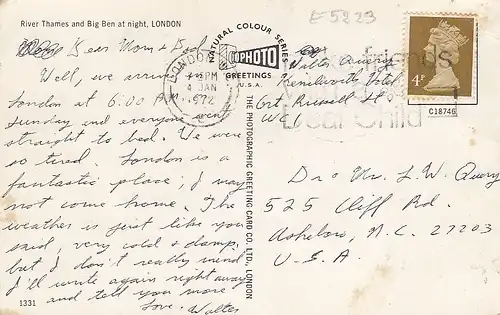 River Thames and Big Ben at night, LONDON
Dear Mom & Dad,
Well, we arrived
London at 6:00 A.M.
Sunday and everyone went
straight to bed. We were
so tired. London is a
fantastic place, I may
not come home. The
weather is just like you
said, very cold & damp,
but I don't really mind.
I'll write again right away
and tell you more
Love. Walter
1331
NATURAL COLOUR SERIES
PHOTO
GREETINGS
U.S.A.
THE PHOTOGRAPHIC GREETING CARD CO. LTD., LONDON
LONDON
PM
4 JAN
1972
E5223
Walter Query
Kenilworth Hotel
Grt. Russell St.
WC1
friends
Deaf Child
4P
C18746
Dr & Mrs. L. W. Query
525 Cliff Rd.
Asheboro, N.C. 27203
U.S.A.